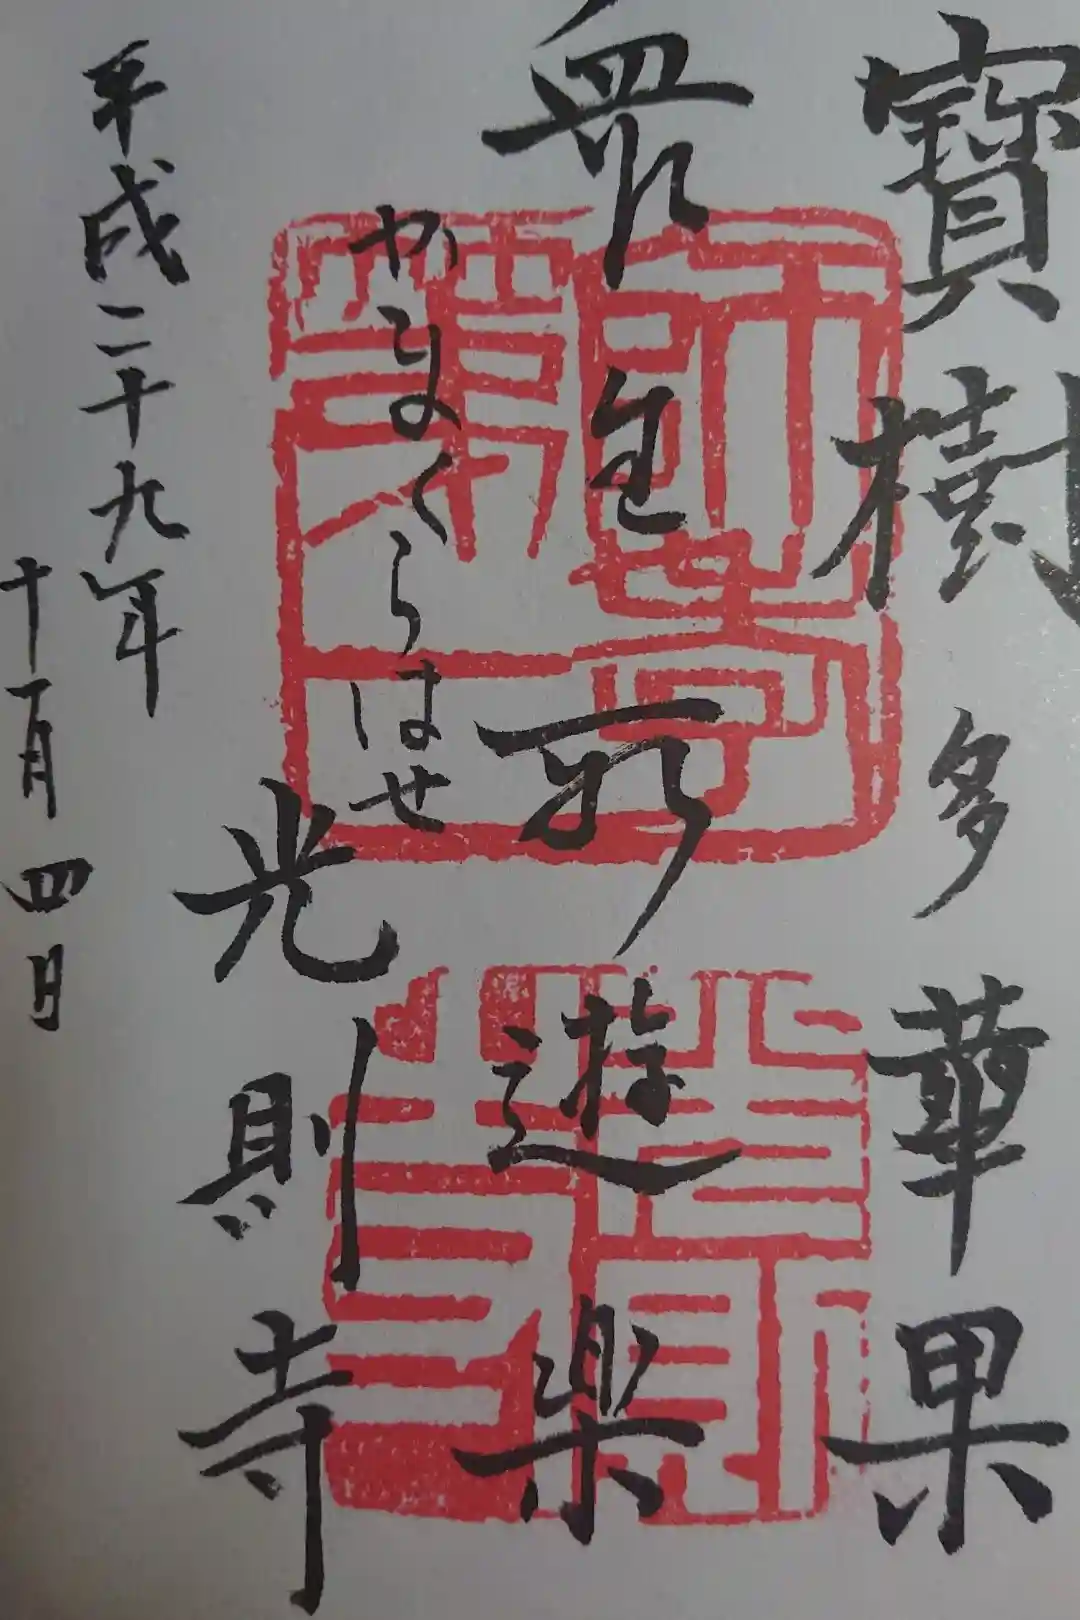 寳樹多華果
衆生所遊楽
かまくらはせ
光則寺
平成二十九年
十月四日